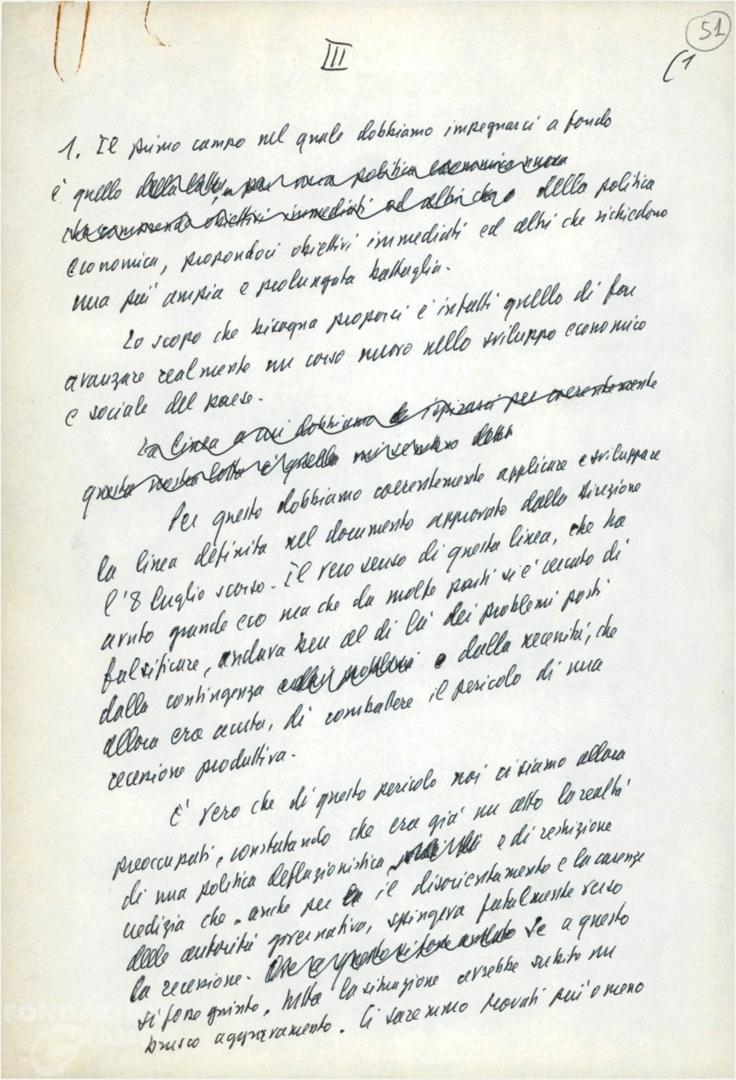 51
III
(1
1. Il primo campo nel quale dobbiamo impegnarci a fondo
è quello della lotta, per una politica economica nuova
che comprenda obiettivi immediati ed altri che della politica
economica, propondoci obiettivi immediati ed altri che richiedono
una più ampia e prolungata battaglia.
Lo scopo che bisogna proporci è infatti quello di far
avanzare realmente un corso nuovo nello sviluppo economico
e sociale del paese.
La linea a cui dobbiamo ispirarci per coerentemente
questa nostra lotta è quella
Per questo dobbiamo coerentemente applicare e sviluppare
la linea definita nel documento approvato dalla Direzione
l'8 luglio scorso. Il vero senso di questa linea, che ha
avuto grande eco ma che da molte parti si è cercato di
falsificare, andava ben al di là dei problemi posti
dalla contingenza e dalla necessità, che
allora era acuta, di combattere il pericolo di una
recessione produttiva.
È vero che di questo pericolo noi ci siamo allora
preoccupati, constatando che era già in atto la realtà
di una politica deflazionistica e di restrizione
creditizia che, anche per il disorientamento e la carenza
delle autorità governative, spingeva fatalmente verso
la recessione. Se a questo
si fosse giunto, tutta la situazione avrebbe subito un
brusco aggravamento. Ci saremmo trovati più o meno
FONDAZIONE
GRAMSCI